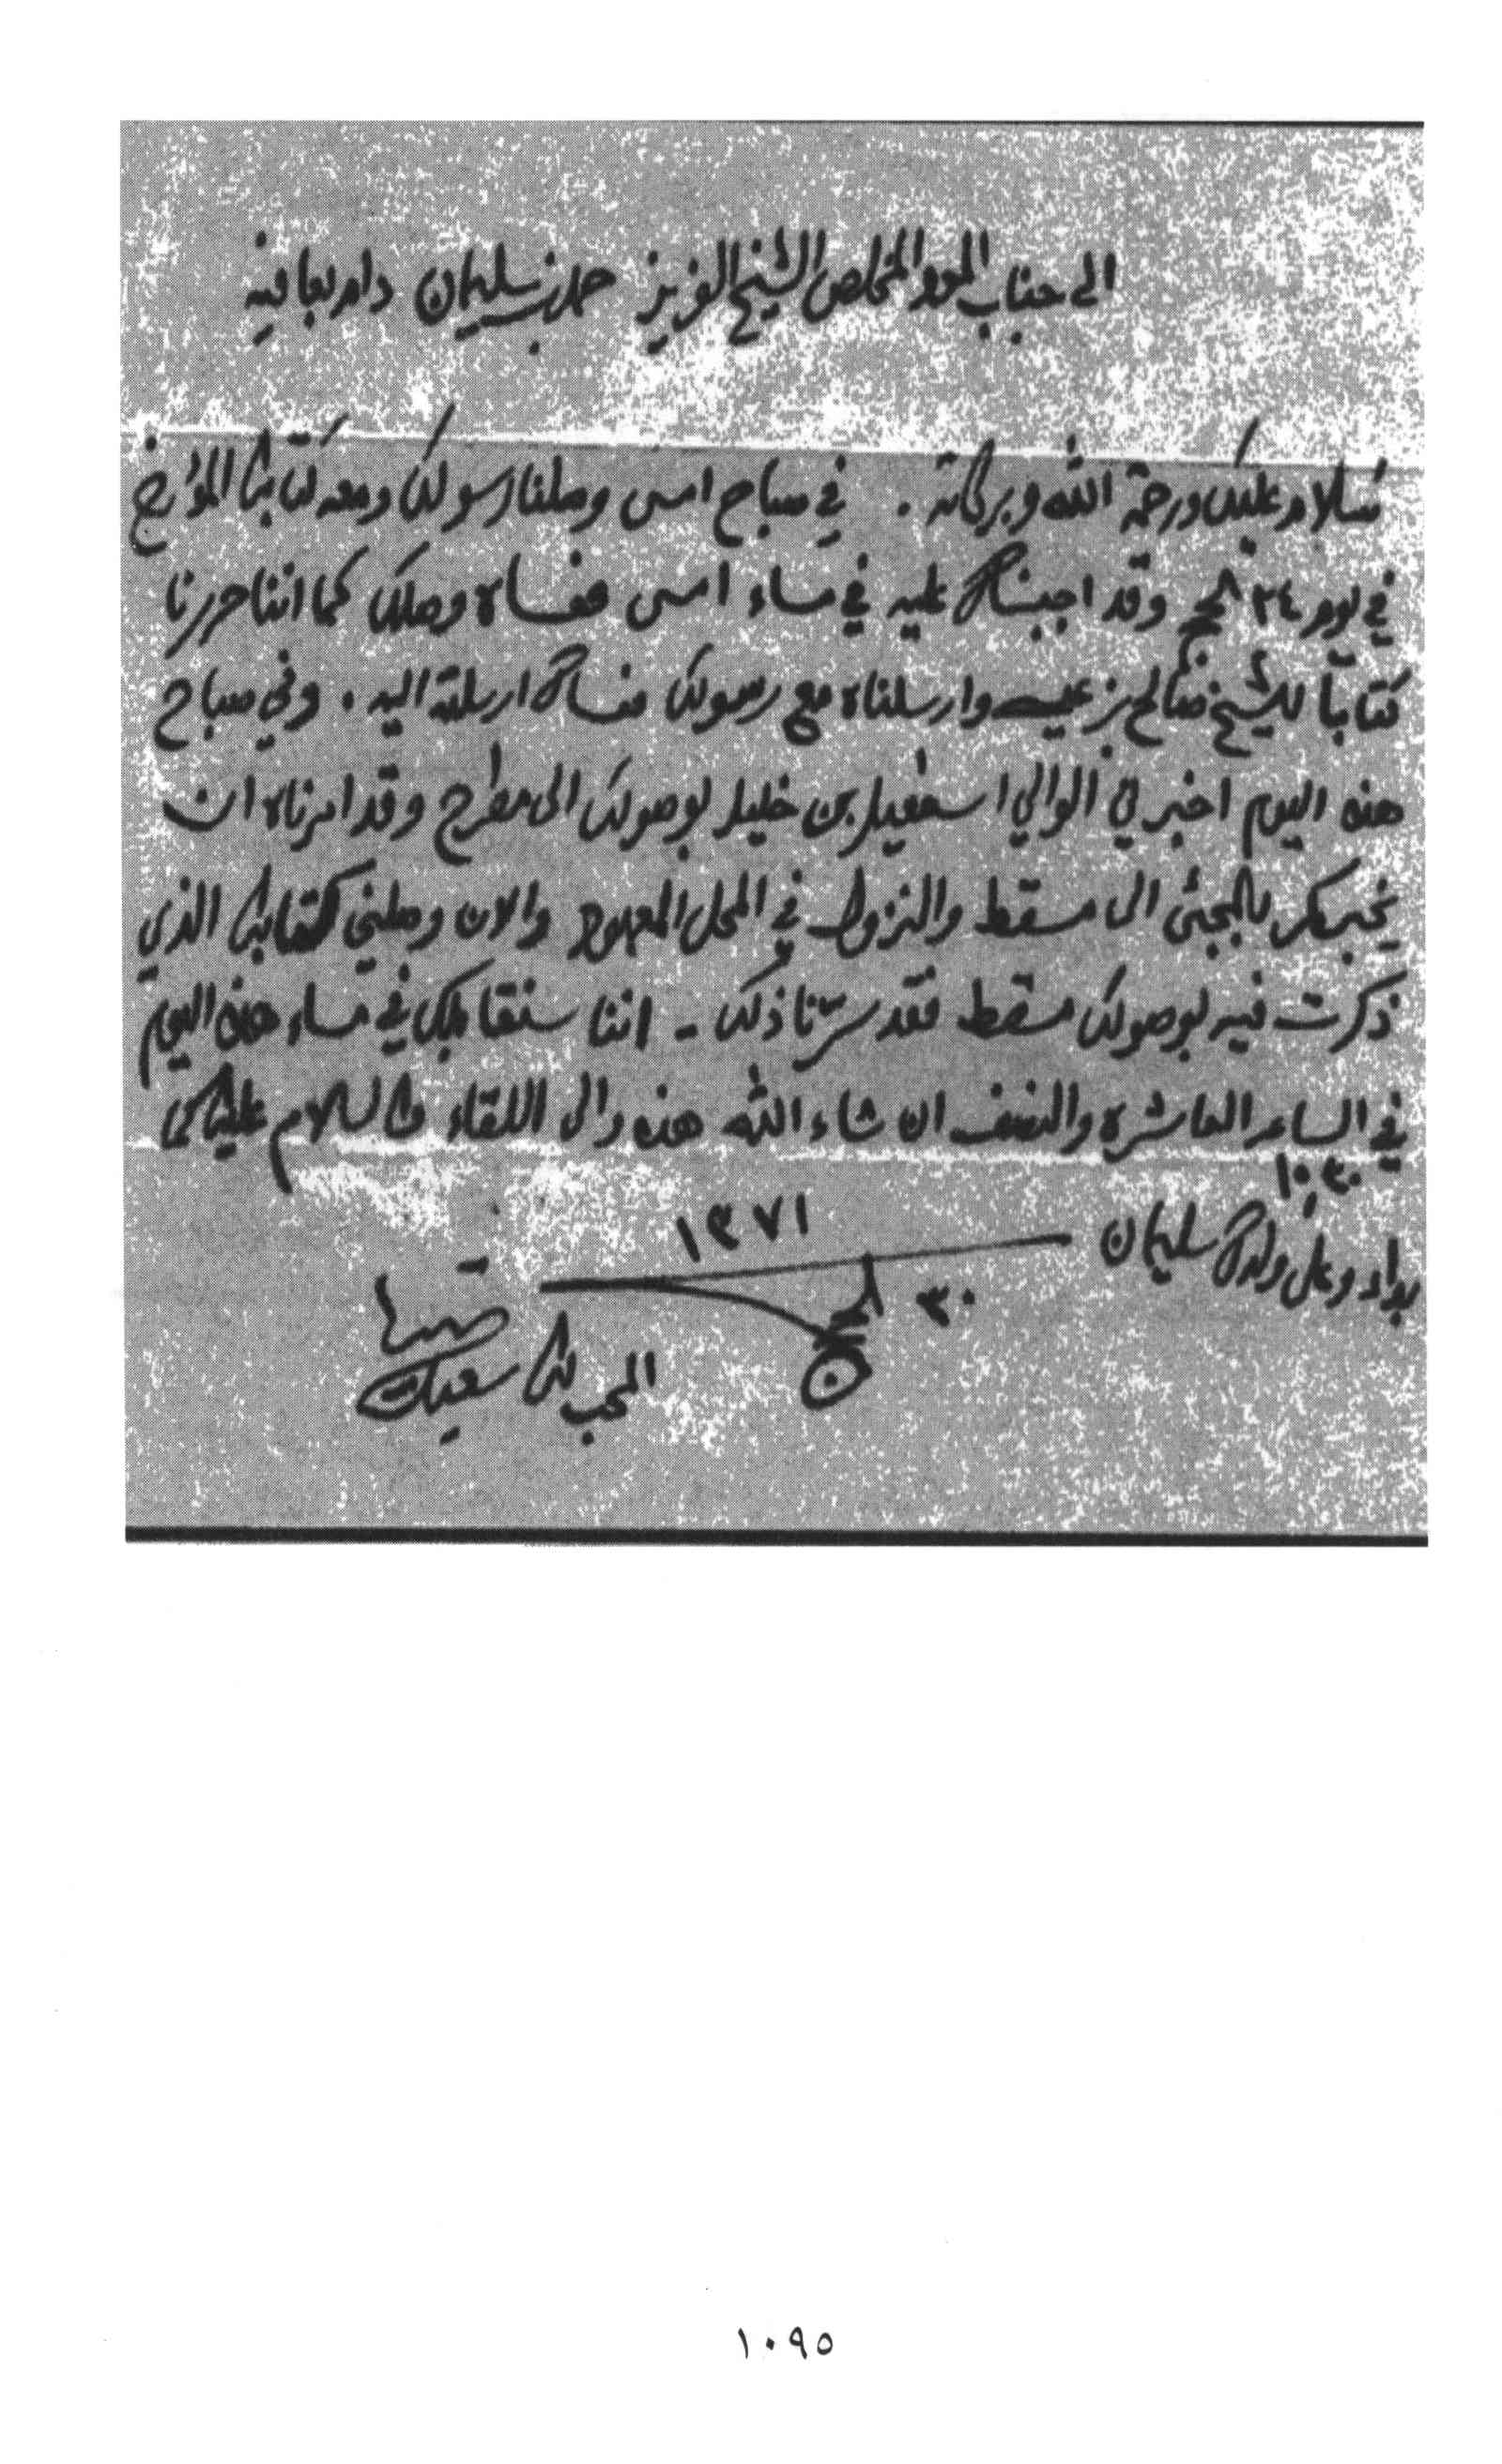 الى جناب المود المخلص الشيخ العزيز حمد بن سليمان دام بعافيه
سلام عليك ورحمة الله وبركاته . في صباح امس وصلنا رسولك ومعه كتابك المؤرخ
في يوم ٢٤ الحج وقد اجبناك عليه في مساء امس فعساه وصلك كما اننا حررنا
كتاباً للشيخ صالح بن عيسى وارسلناه مع رسولك فعساك ارسلته اليه . وفي صباح
هذه اليوم اخبرني الوالي اسمعيل بن خليل بوصولك الى مطرح وقد امرناه ان
يخبركم بالمجئ الى مسقط والنزول في المحل المعهود والان وصلني كتابك الذي
ذكرت فيه بوصولك مسقط فقد سرّنا ذلك - اننا سنقابلك في مساء هذه اليوم
في الساعه العاشره والنصف ان شاء الله هذه والى اللقاء والسلام عليك
١٠،٣٠
وعلى ولدك سليمان
١٣٧١
٣٠ الحج
المحب لك سعيد بن
١٠٩٥